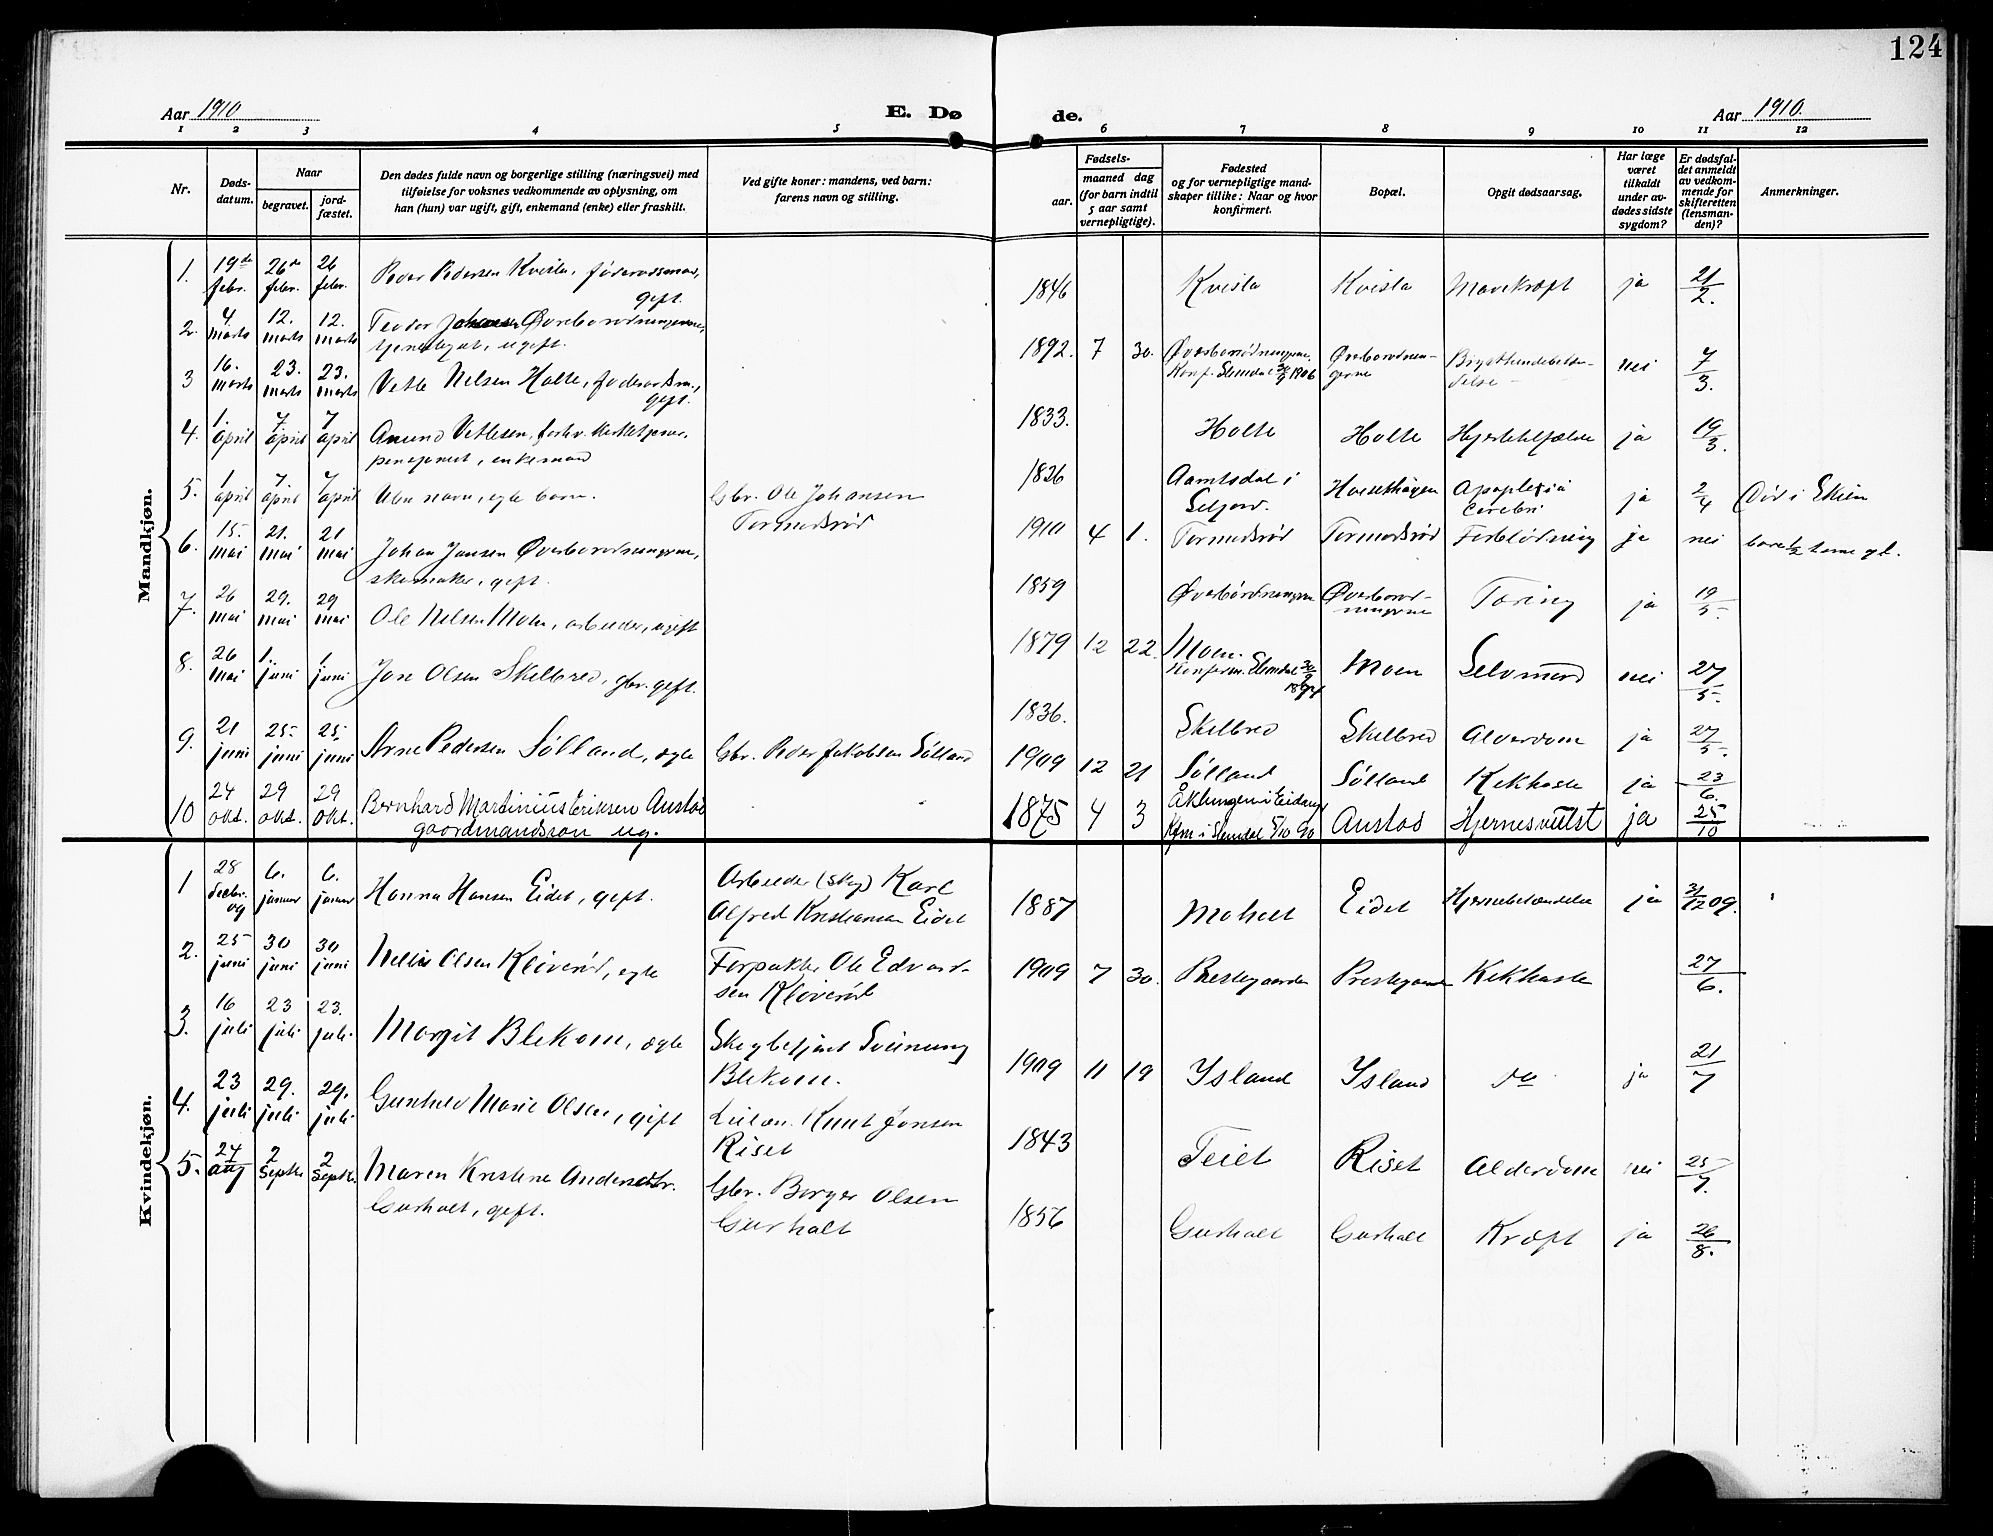 124
Aar 1910
E. Dø de.
Aar 1910.
1 2 3 4 5 6 7 8 9 10 11 12
Nr.
Døds-
datum.
Naar
begravet.
jord-
fæstet.
Den dødes fulde navn og borgerlige stilling (næringsvei) med
tilføielse for voksnes vedkommende av oplysning, om
han (hun) var ugift, gift, enkemand (enke) eller fraskilt.
Ved gifte koner: mandens, ved barn:
farens navn og stilling.
Fødsels-
aar.
maaned dag
(for barn indtil
5 aar samt
vernepligtige).
Fødested
og for vernepligtige mand-
skaper tillike: Naar og hvor
konfirmert.
Bopæl.
Opgit dødsaarsag.
Har læge
været
tilkaldt
under av-
dødes sidste
sygdom?
Er dødsfal-
det anmeldt
av vedkom-
mende for
skifteretten
(lensman-
den)?
Anmerkninger.
Mandkjøn.
1. 19de febr. 26de febr. 26 febr. Peder Pedersen Kvisla, føderaadsmand,
gift. 1846 Kvisla Kvisla Mavekræft ja 21/2.
2. 4. marts 12. marts 12. marts Teodor Johansen Øverbørødningerne,
tjenestegut, ugift. 1892. 7 30. Øverbørødningerne. Konf. Slemdal 1906 Øverbørødnin-
gerne nei 7/3.
3 16. marts 23. marts 23. marts Vetle Nelsen Holte, føderaadsm.,
gift. 1833. Holte Holte Hjertelfælde ja 19/3.
4. 1. april 7. april 7 april Amund Vetlesen, forhv.
enkemand 1826 Aamtsdal i
Seljord. Apoplexia
cerebri ja 2/4 Død i Skien
5. 1 april 7. april 7 april Uden navn, egte barn. Gbr. Ole Johansen
Tormodsrød 1910 4 1. Tormodsrød Tormodsrød Forblødning ja nei
6. 15. mai 21. mai 21 mai Johan Jansen Øverbørødningerne,
skomaker, gift. 1859 Øverbørødningerne Øverbørød-
ningerne Tæring ja 19/5.
7. 26 mai 29. mai 29 mai Ole Nelsen Moen, arbeider, ugift 1879 12 22. Moen.
Konferm. Slemdal 1894 Moen Selvmord nei 27/5.
8. 26 mai 1. juni 1. juni Jon Olsen Skelbred, gbr. gift. 1836. Skelbred Skelbred Alderdom ja 27/5.
9. 21 juni 25. juni 25. juni Arne Pedersen Sølland, egte Gbr. Peder Jakobsen Sølland 1909 12 21 Sølland Sølland Kikhoste ja 23/6.
10 24 okt. 29 okt. 29 okt. Bernhard Martinius Eriksen Austad
gaardmandssøn ug. 1875 4 3 Åklungen i Eidanger
Kfm i Slemdal 5/10 90 Austad Hjernesvulst ja 25/10
Kvindekjøn.
1 28 decbr. 09 6. januar 6. januar Hanna Hansen Eidet, gift. Arbeider (skog) Karl
Alfred Kristiansen Eidet 1887 Moholt Eidet Hjernebetændelse ja 31/12 09.
2. 25 juni 30 juni 30 juni Nelli Olsen Kløverød, egte Forpakter Ole Edvard-
sen Kløverød 1909 7 30. Prestegaarden Prestegaarden Kikhoste 27/6.
3. 16 juli 23 juli 23. juli Margit Blekom, egte Skogbetjent Sveinung
Blekom. 1909 11 19 Ysland Ysland do ja 21/7
4. 23 juli 29. juli 29. juli Gunhild Marie Olsen, gift Leilæn. Knut Jonsen
Riset 1843 Teiet Riset Alderdom nei 25/7.
5. 24 aug 2 septbr. 2 septbr. Maren Kristine Andersdtr.
Gurholt, gift. Gbr. Borger Olsen
Gurholt 1856 Gurholt Gurholt Kræft ja 26/8.